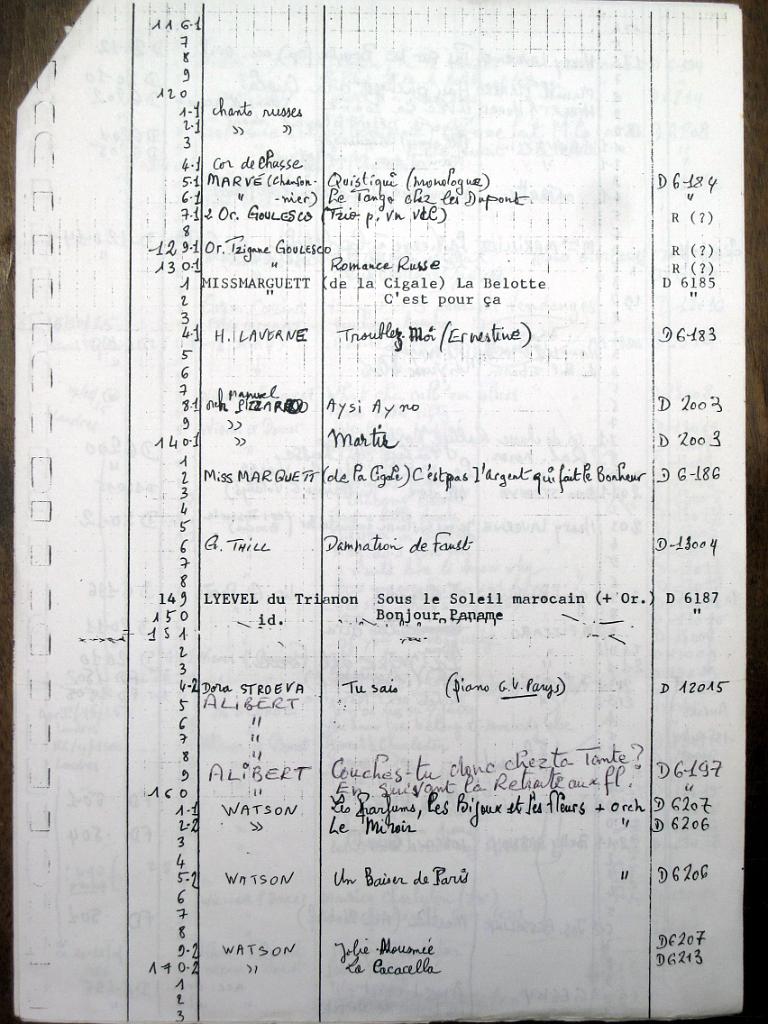 116-1
7
8
9
120
1-1 chants russes
2-1 » »
3
4-1 Cor de chasse
5-1 MARVÉ (chanson- Quistiqui (monologue) D 6184
6-1 " -nier) Le Tango chez les Dupont "
7-1 2 Or. GOULESCO (Trio p, vn vlc) R (?)
8
129-1 Or. Tzigane GOULESCO R (?)
130-1 " Romance Russe R (?)
1 MISSMARGUETT (de la Cigale) La Belotte D 6185
2 " C'est pour ça "
3
4-1 H. LAVERNE Troublez-Moi (Ernestine) D 6183
5
6
7
8-1 orch Manuel PIZZARRO Aysi Ayno D 2003
9 »
140-1 » D 2003
1
2 Miss MARQUETT (de la Cigale) C'est pas l'argent qui fait le Bonheur D 6-186
3
4
5
6 G. THILL Damnation de Faust D-13004
7
8
149 LYEVEL du Trianon Sous le Soleil marocain (+ Or.) D 6187
150 id. Bonjour Paname "
151
2
3
4-2 Dora STROEVA Tu sais (piano G.V. Parys) D 12015
5 ALIBERT
6 "
7 "
8 "
9 ALIBERT Couches-tu donc chez ta Tante? D6-197
160 " En suivant la Retraite aux fl. "
1-1 WATSON Les Parfums, les Bijoux et les fleurs + orch D 6207
2-2 » Le Miroir " D 6206
3
4
5-2 WATSON Un Baiser de Paris " D 6206
6
7
8
9-2 WATSON Jolie Mousmée D6207
170-2 » La Cacacella D6213
1
2
3